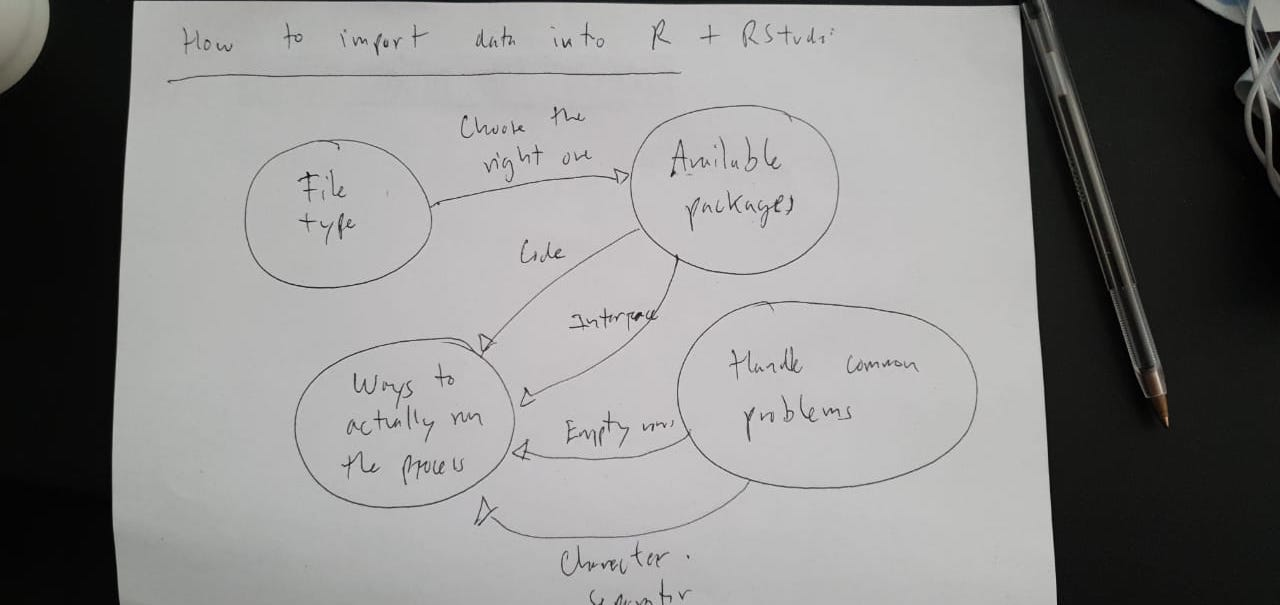 How to import data into R + RStudi
Choose the
right one
File
type
Available
packages
Code
Interface
Ways to
actually run
the process
Handle common
problems
Empty rows
Character
separator